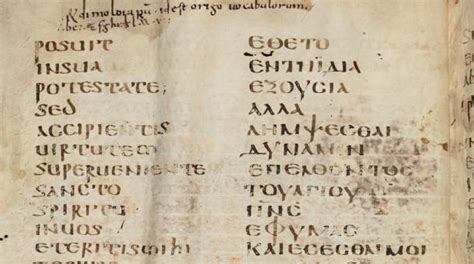 id est origo vocabulorum.
POSUIT ΕΘΕΤΟ
INSUA ΕΝΤΗΪΔΙΑ
POTESTATE; ΕΞΟΥCΙΑ
SED ΑΛΛΑ
ACCIPIETIS ΛΗΜΨΕCΘΑΙ
UIRTUTEM ΔΥΝΑΜΙΝ
SUPERUENIENTE ΕΠΕΛΘΟΝΤΟC
SANCTO ΤΟΥΑΓΙΟΥ
SPIRITU ΠΝC
INUOS ΕΦΥΜΑC
ETERITISMIHI ΚΑΙΕCΕCΘΕ ΜΟΙ